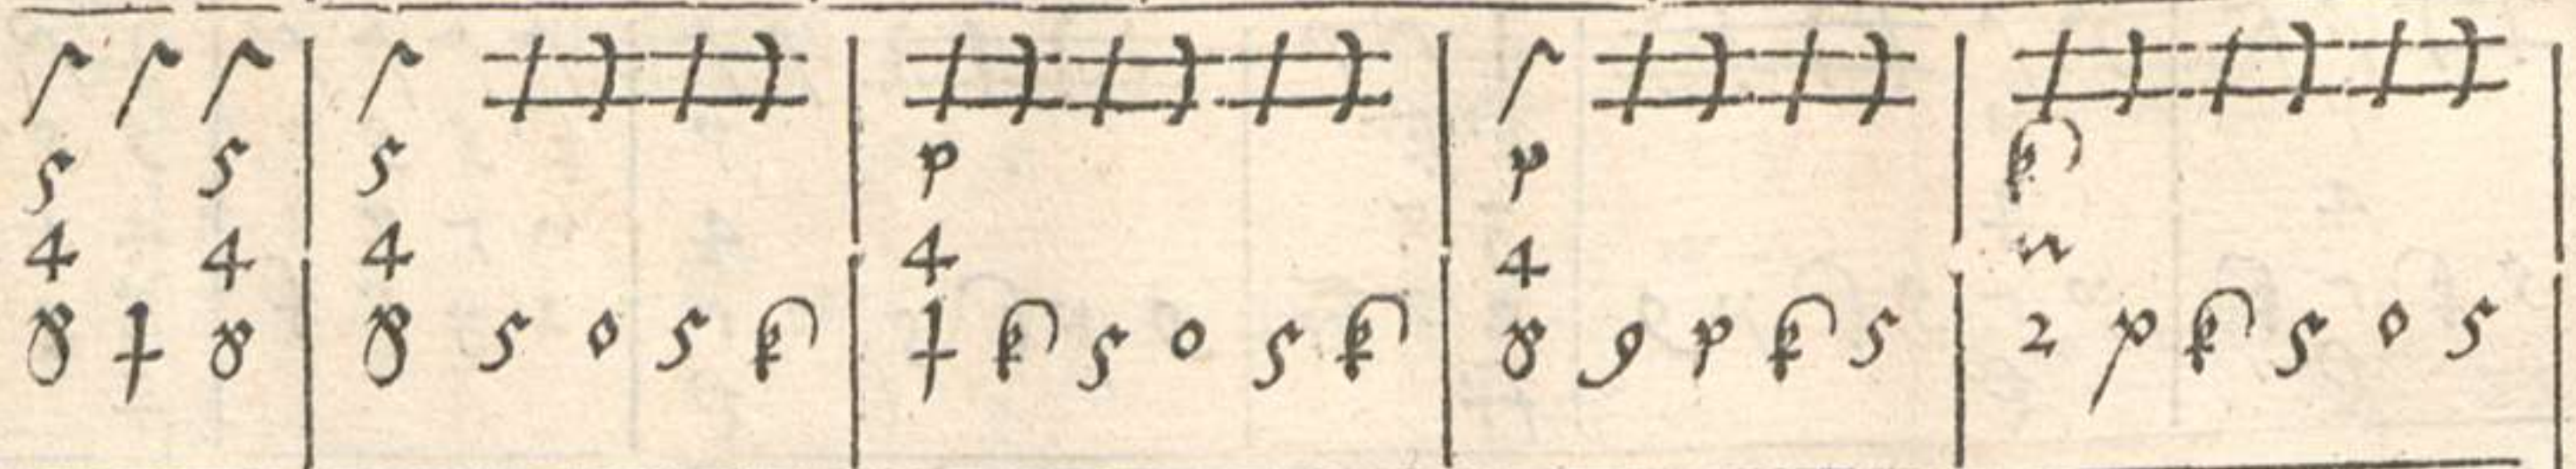 5 5 | 5 | p | p | k
4 4 | 4 | 4 | 4 | n
8 † 8 | 8 5 o 5 k | † k 5 o 5 k | 8 9 p k 5 | 2 p k 5 o 5